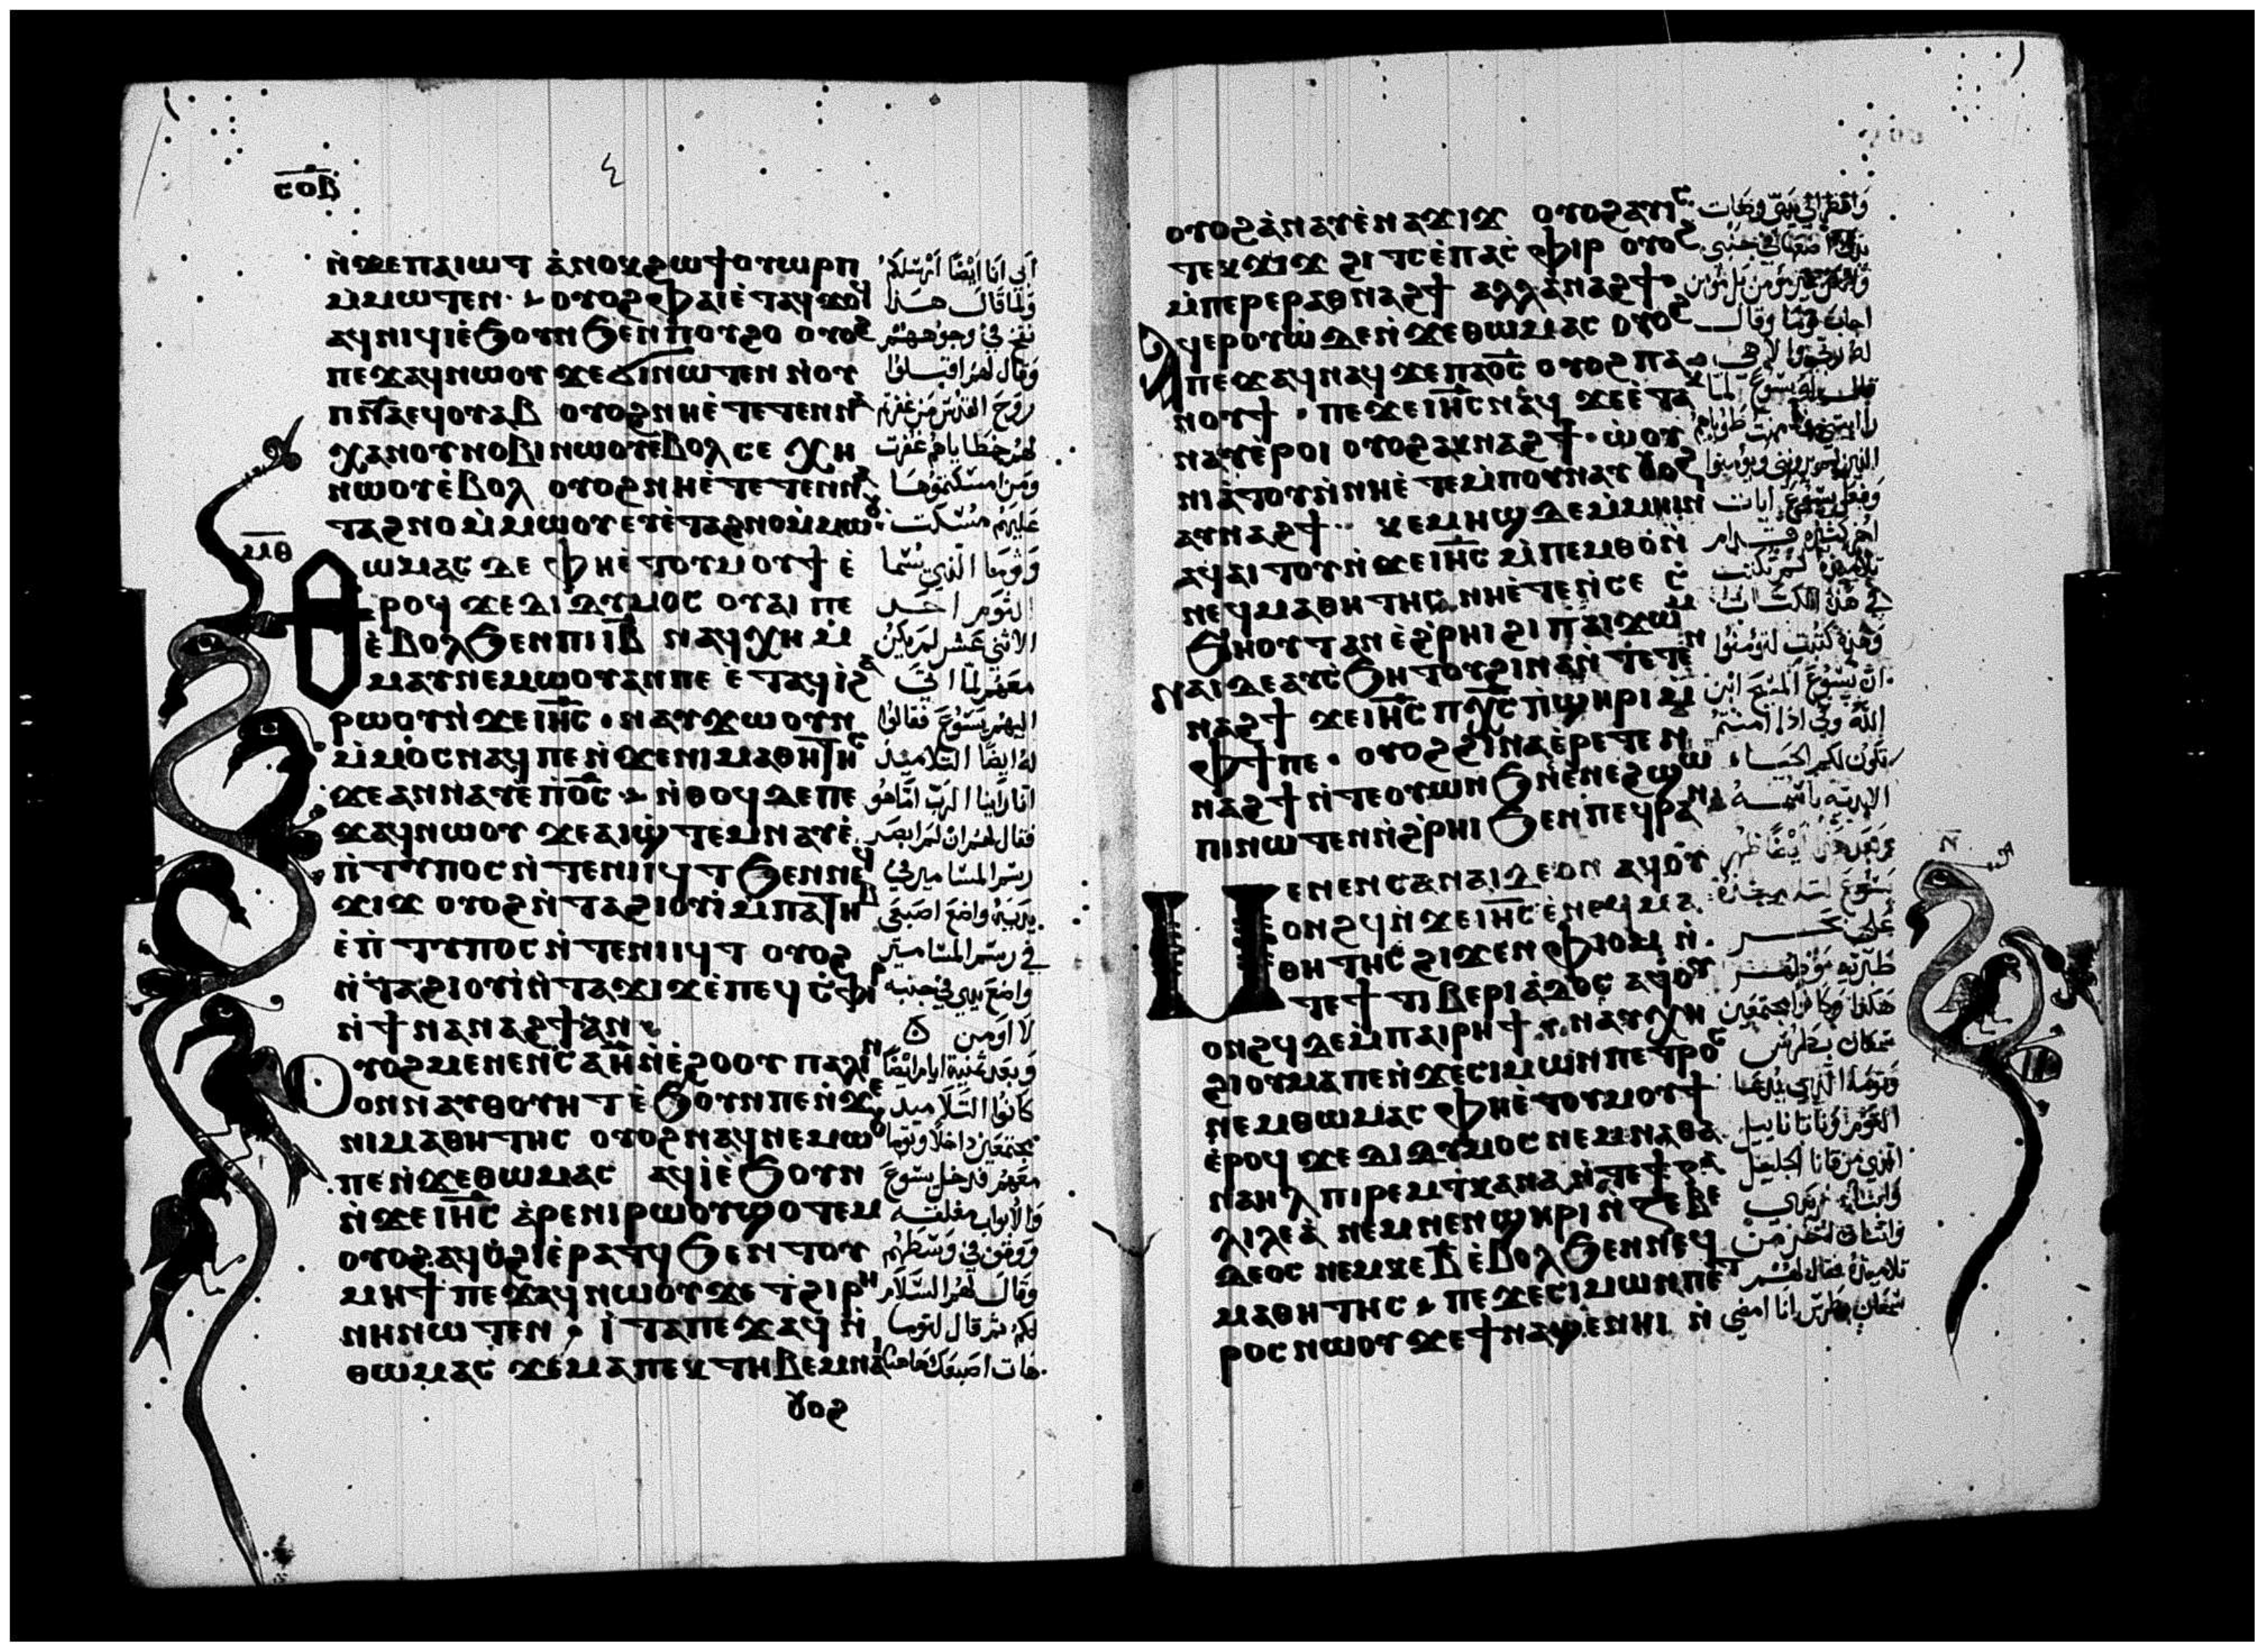 ⲥⲟⲃ
٤
ⲛ̀ϫⲉⲡⲁⲓⲱⲧ ⲁ̀ⲛⲟⲕϩⲱϯⲟⲩⲱⲣⲡ
ⲙ̀ⲙⲱⲧⲉⲛ· ⲟⲩⲟϩ ⲫⲁⲓ ⲉ̀ⲧⲁϥϫⲟϥ
ⲁϥⲛⲓϥⲓ ⲉ̀ϧⲟⲩⲛ ϧⲉⲛ ⲡⲟⲩϩⲟ ⲟⲩⲟϩ
ⲡⲉϫⲁϥⲛⲱⲟⲩ ϫⲉϭⲓⲛⲱⲧⲉⲛ ⲛ̀ⲟⲩ
ⲡⲛ̅ⲁ̅ⲉϥⲟⲩⲁⲃ ⲟⲩⲟϩ ⲛⲏⲉ̀ⲧⲉⲧⲉⲛⲛⲁ
ⲭⲁⲛⲟⲩⲛⲟⲃⲓ ⲛⲱⲟⲩⲉ̀ⲃⲟⲗ ⲥⲉ ⲭⲏ
ⲛⲱⲟⲩⲉ̀ⲃⲟⲗ ⲟⲩⲟϩ ⲛⲏⲉ̀ⲧⲉⲧⲉⲛⲛⲁ
ⲧⲁϩⲛⲟ ⲙ̀ⲙⲱⲟⲩ ⲉⲩⲉ̀ⲧⲁϩⲛⲟ ⲙ̀ⲙⲱⲟⲩ
ⲙⲑ
ⲑⲱⲙⲁⲥ ⲇⲉ ⲫⲏⲉ̀ⲧⲟⲩⲙⲟⲩϯ ⲉ̀
ⲣⲟϥ ϫⲉⲇⲓⲇⲩⲙⲟⲥ ⲟⲩⲁⲓ ⲡⲉ
ⲉ̀ⲃⲟⲗ ϧⲉⲛ ⲡⲓⲓ̅ⲃ̅ ⲛⲁϥⲭⲏ ⲙ̀
ⲙⲁⲩ ⲛⲉⲙⲱⲟⲩ ⲁⲛ ⲡⲉ ⲉ̀ⲧⲁϥⲓ̀ϩⲁ
ⲣⲱⲟⲩ ⲛ̀ϫⲉⲓⲏ̅ⲥ̅ · ⲛⲁⲩϫⲱ ⲟⲩⲛ
ⲙ̀ⲙⲟⲥ ⲛⲁϥ ⲡⲉ ⲛ̀ϫⲉⲛⲓⲙⲁⲑⲏⲧⲏⲥ
ϫⲉ ⲁⲛⲛⲁⲩ ⲉ̀ⲡⲟ̅ⲥ̅ · ⲛ̀ⲑⲟϥ ⲇⲉ ⲡⲉ
ϫⲁϥ ⲛⲱⲟⲩ ϫⲉ ⲁⲓϣ̀ⲧⲉⲙⲛⲁⲩ ⲉ̀
ⲡ̀ⲧⲩⲡⲟⲥ ⲛ̀ⲧⲉⲛⲓⲓϥⲧ ϧⲉⲛⲛⲉϥ
ϫⲓϫ ⲟⲩⲟϩ ⲛ̀ⲧⲁϩⲓⲟⲩⲓ̀ ⲙ̀ⲡⲁⲧⲏⲃ
ⲉ̀ⲡ̀ⲧⲩⲡⲟⲥ ⲛ̀ⲧⲉⲛⲓⲓϥⲧ ⲟⲩⲟϩ
ⲛ̀ⲧⲁϩⲓⲟⲩⲓ̀ ⲛ̀ⲧⲁϫⲓϫ ⲉ̀ⲡⲉϥⲥ̀ⲫⲓⲣ
ⲛ̀ϯⲛⲁⲛⲁϩϯ ⲁⲛ
ⲟⲩⲟϩ ⲙⲉⲛⲉⲛⲥⲁ ⲏ̅ ⲛ̀ⲉ̀ϩⲟⲟⲩ ⲡⲁⲗⲓⲛ
ⲟⲛ ⲛⲁⲩⲑⲟⲩⲏⲧ ⲉ̀ϧⲟⲩⲛ ⲡⲉ ⲛ̀ϫⲉ
ⲛⲓⲙⲁⲑⲏⲧⲏⲥ ⲟⲩⲟϩ ⲛⲁϥⲛⲉⲙⲱⲟⲩ
ⲡⲉ ⲛ̀ϫⲉⲑⲱⲙⲁⲥ ⲁϥⲓ̀ⲉ̀ϧⲟⲩⲛ
ⲛ̀ϫⲉⲓⲏ̅ⲥ̅ ⲁ̀ⲣⲉⲛⲓⲣⲱⲟⲩ ϣⲟⲧⲉⲙ
ⲟⲩⲟϩ ⲁϥⲟ̀ϩⲓ ⲉ̀ⲣⲁⲧϥ ϧⲉⲛ ⲧⲟⲩ
ⲙⲏϯ ⲡⲉϫⲁϥ ⲛⲱⲟⲩ ϫⲉ ⲧ̀ϩⲓⲣⲏ
ⲛⲏ ⲛⲱⲧⲉⲛ · ⲓ̀ⲧⲁ ⲡⲉϫⲁϥ ⲛ̀
ⲑⲱⲙⲁⲥ ϫⲉ ⲙⲁ ⲡⲉⲕⲧⲏⲃ ⲉⲙⲛⲁ
ⲟⲩⲟϩ
ابى انا ايضًا ارسلكم
ولما قال هذا
نفخ في وجوههم
وقال لهم اقبلوا
روح القدس من غفرتم
لهم خطاياهم غفرت
ومن امسكتموها
عليهم مسكت
وتوما الذي يسما
التوم احد
الاثني عشر لم يكن
معهم لما اتى
اليهم يسوع فقالوا
له ايضًا التلاميذ
اننا راينا الرب اما هو
فقال لهم ان لم ابصر
رسم المسامير في
يديه واضع اصبعي
في رسم المسامير
واضع يدي في جنبه
لا اومن
وبعد ثمنية ايام ايضًا
كانوا التلاميذ
مجتمعين داخلا وتوما
معهم فدخل يسوع
والابواب مغلقه
ووقف في وسطهم
وقال لهم السلام
لكم ثم قال لتوما
هات اصبعك هاهنا
ⲟⲩⲟϩ ⲁ̀ⲛⲁⲩ ⲉ̀ⲛⲁϫⲓϫ ⲟⲩⲟϩ ⲁⲩⲓⲥ
ⲧⲉⲕϫⲓϫ ϩⲓⲧⲥ ⲉ̀ⲡⲁⲥ̀ⲫⲓⲣ ⲟⲩⲟϩ
ⲙ̀ⲡⲉⲣⲉⲣⲁⲑⲛⲁϩϯ ⲁⲗⲗⲁ ⲛⲁϩϯ·
ⲁϥⲉⲣⲟⲩⲱ̀ ⲇⲉ ⲛ̀ϫⲉⲑⲱⲙⲁⲥ ⲟⲩⲟϩ
ⲡⲉϫⲁϥ ⲛⲁϥ ϫⲉ ⲡⲁⲟ̅ⲥ̅ ⲟⲩⲟϩ ⲡⲁ
ⲛⲟⲩϯ · ⲡⲉϫⲉⲓⲏ̅ⲥ̅ ⲛⲁϥ ϫⲉ ⲉ̀ⲧⲁⲕ
ⲛⲁⲩ ⲉ̀ⲣⲟⲓ ⲟⲩⲟϩ ⲁⲕⲛⲁϩϯ · ⲱ̀ⲟⲩ
ⲛⲓⲁ̀ⲧⲟⲩ ⲛ̀ⲛⲏⲉ̀ⲧⲉⲙ̀ⲡⲟⲩⲛⲁⲩ ⲟⲩⲟϩ
ⲁⲩⲛⲁϩϯ ·· ⲕⲉⲙⲏϣ ⲇⲉ ⲙ̀ⲙⲏⲓⲛⲓ
ⲁϥⲁⲓⲧⲟⲩ ⲛ̀ϫⲉⲓⲏ̅ⲥ̅ ⲙ̀ⲡⲉⲙⲑⲟ ⲛ̀
ⲛⲉϥⲙⲁⲑⲏⲧⲏⲥ ⲛⲏⲉ̀ⲧⲉⲛ̀ⲥⲉ ⲥ̀
ϧⲏⲟⲩⲧ ⲁⲛ ⲉ̀ϩ̀ⲣⲏⲓ ϩⲓ ⲡⲁⲓϫⲱⲙ
ⲛⲁⲓ ⲇⲉ ⲁⲩⲥ̀ϧⲏⲧⲟⲩ ϩⲓⲛⲁ ⲛ̀ⲧⲉⲧⲉⲛ
ⲛⲁϩϯ ϫⲉ ⲓⲏ̅ⲥ̅ ⲡⲭ̅ⲥ̅ ⲡ̀ϣⲏⲣⲓ ⲙ̀
ⲫϯ ⲡⲉ · ⲟⲩⲟϩ ϩⲓⲛⲁ ⲉ̀ⲣⲉⲧⲉⲛ
ⲛⲁϩϯ ⲛ̀ⲧⲉⲟⲩⲱⲛϧ ⲛ̀ⲉ̀ⲛⲉϩ ϣⲱ
ⲡⲓ ⲛⲱⲧⲉⲛ ⲛ̀ϩ̀ⲣⲏⲓ ϧⲉⲛ ⲡⲉϥⲣⲁⲛ
ⲛ̅
ⲙⲉⲛⲉⲛⲥⲁ ⲛⲁⲓ ⲇⲉ ⲟⲛ ⲁϥⲟⲩ
ⲟⲛϩϥ ⲛ̀ϫⲉⲓⲏ̅ⲥ̅ ⲉ̀ⲛⲉϥⲙⲁ
ⲑⲏⲧⲏⲥ ϩⲓϫⲉⲛ ⲫⲓⲟⲙ ⲛ̀
ⲧⲉ ϯⲧⲓⲃⲉⲣⲓⲁ̀ⲇⲟⲥ ⲁϥⲟⲩ
ⲟⲛϩϥ ⲇⲉ ⲙ̀ⲡⲁⲓⲣⲏϯ · ⲛⲁⲩⲭⲏ
ϩⲓⲟⲩⲙⲁ ⲡⲉ ⲛ̀ϫⲉⲥⲓⲙⲱⲛ ⲡⲉⲧⲣⲟⲥ
ⲛⲉⲙ ⲑⲱⲙⲁⲥ ⲫⲏⲉ̀ⲧⲟⲩⲙⲟⲩϯ
ⲉ̀ⲣⲟϥ ϫⲉⲇⲓⲇⲩⲙⲟⲥ ⲛⲉⲙ ⲛⲁⲑⲁ
ⲛⲁⲏⲗ ⲡⲓⲣⲉⲙⲧ̀ⲕⲁⲛⲁ ⲛ̀ⲧⲉ ϯⲅⲁ
ⲗⲓⲗⲉⲁ̀ ⲛⲉⲙ ⲛⲉⲛϣⲏⲣⲓ ⲛ̀ⲍⲉⲃⲉ
ⲇⲉⲟⲥ ⲛⲉⲙ ⲕⲉⲃ̅ ⲉ̀ⲃⲟⲗ ϧⲉⲛ ⲛⲉϥ
ⲙⲁⲑⲏⲧⲏⲥ · ⲡⲉϫⲉⲥⲓⲙⲱⲛ ⲡⲉⲧ
ⲣⲟⲥ ⲛⲱⲟⲩ ϫⲉ ϯⲛⲁϣⲉⲛⲏⲓ ⲛ̀
وانظر الى يدي وهات
يدك
ولا تكن غير مومن بل مومن
اجاب توما وقال
قال له يسوع لما
الذين لم يروني ويومنوا
وفعل يسوع ايات
اخر كثيره قدام
تلاميذه لم تكتب
في هذا الكتاب
وهذه كتبت لتومنوا
ان يسوع المسيح ابن
الله وكي اذا امنتم
تكون لكم الحياه
الابديه باسمه
ظهر
يسوع لتلاميذه
على بحر
طبريه
هكذا كانوا مجتمعين
سمعان بطرس
وتوما الذي يدعا
التوم وناتاناييل
الذي من قانا الجليل
واثنان اخر من
تلاميذه فقال لهم
سمعان بطرس انا امضي